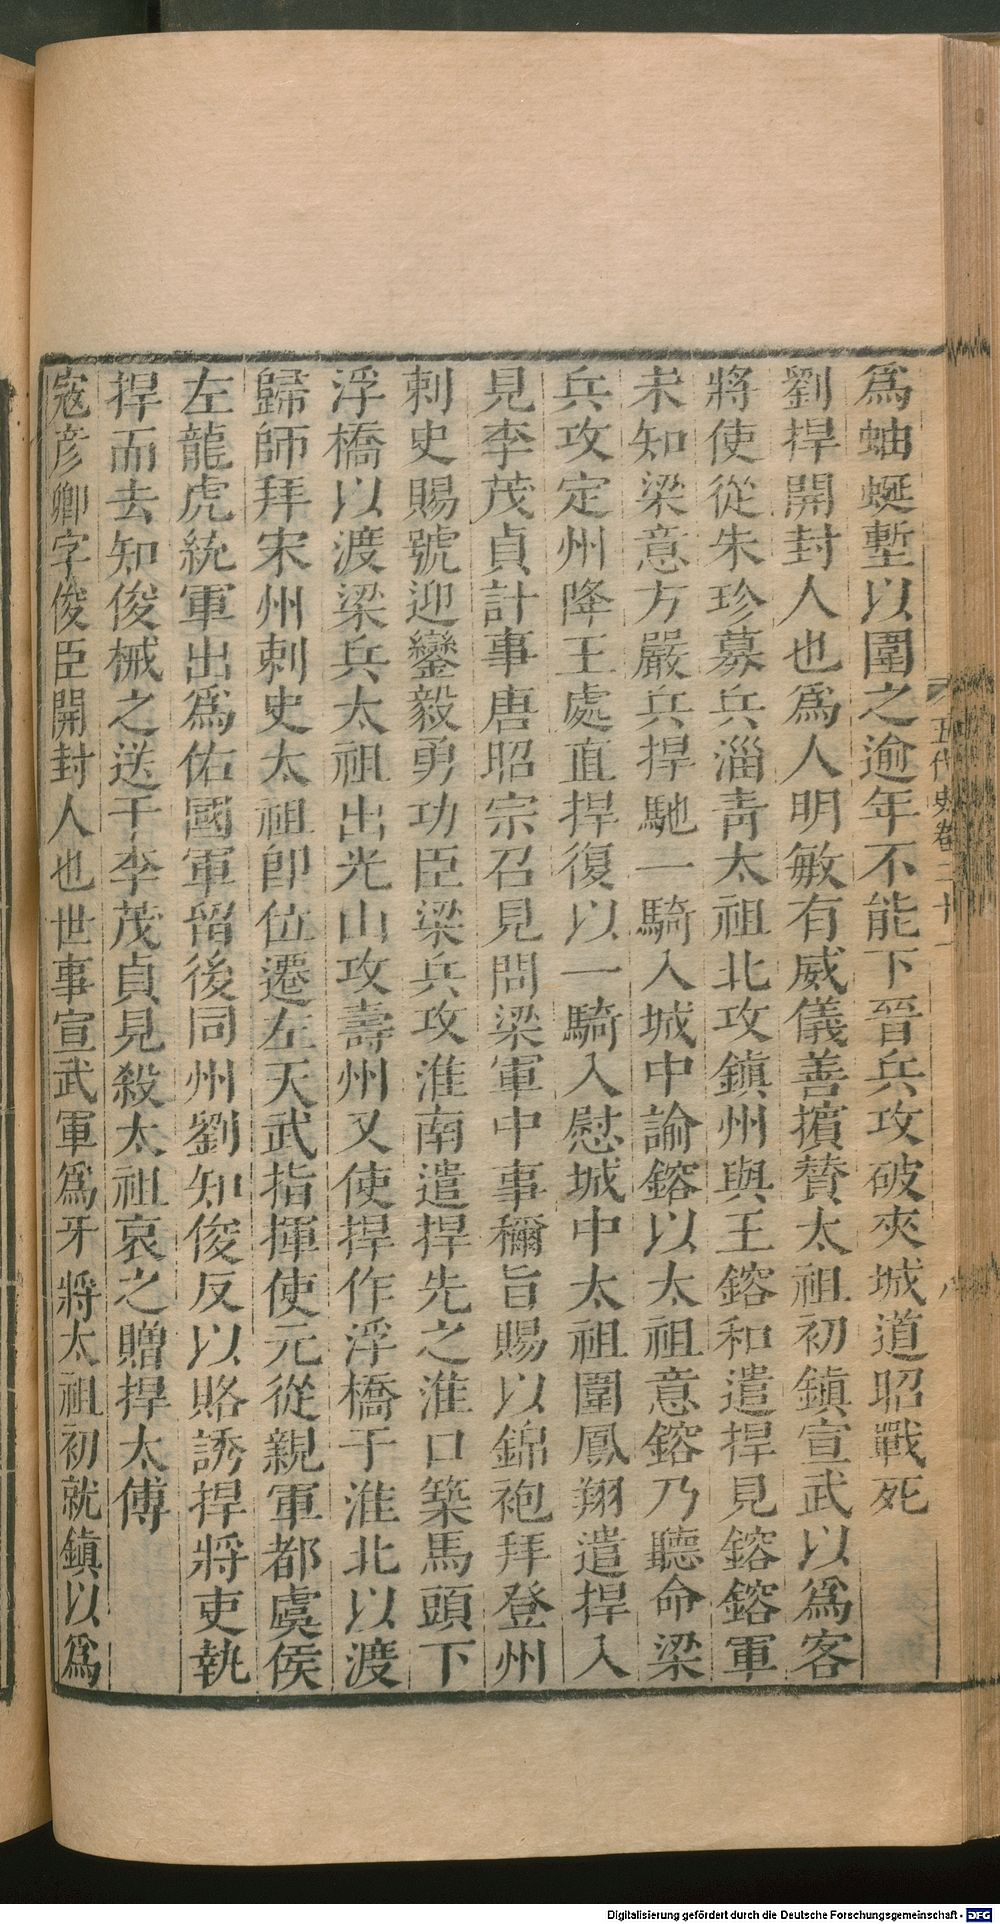 爲蚰蜒塹以圍之逾年不能下晉兵攻破夾城道昭戰死
劉捍開封人也爲人明敏有威儀善擯贊太祖初鎮宣武以爲客
將使從朱珍募兵淄青太祖北攻鎮州與王鎔和遣捍見鎔鎔軍
未知梁意方嚴兵捍馳一騎入城中諭鎔以太祖意鎔乃聽命梁
兵攻定州降王處直捍復以一騎入慰城中太祖圍鳳翔遣捍入
見李茂貞計事唐昭宗召見問梁軍中事稱旨賜以錦袍拜登州
刺史賜號迎鑾毅勇功臣梁兵攻淮南遣捍先之淮口築馬頭下
浮橋以渡梁兵太祖出光山攻壽州又使捍作浮橋于淮北以渡
歸師拜宋州刺史太祖卽位遷左天武指揮使元從親軍都虞侯
左龍虎統軍出爲佑國軍留後同州劉知俊反以賂誘捍將吏執
捍而去知俊械之送于李茂貞見殺太祖哀之贈捍太傅
寇彦卿字俊臣開封人也世事宣武軍爲牙將太祖初就鎮以爲
五代史卷二十一
八
Digitalisierung gefördert durch die Deutsche Forschungsgemeinschaft - DFG